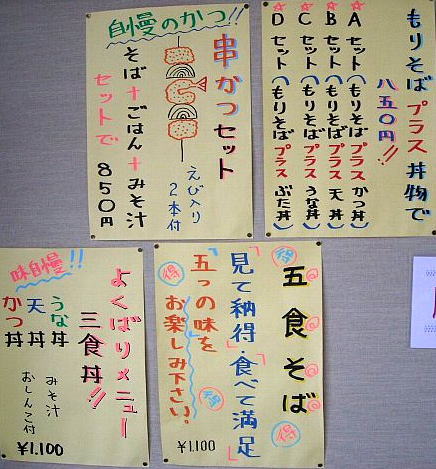 自慢のかつ!!
串かつセット
えび入り
2本付
そば+ごはん+みそ汁
セットで 850円
もりそばプラス丼物で
八五〇円!!
Aセット(もりそばプラスかつ丼)
Bセット(もりそばプラス天丼)
Cセット(もりそばプラスうな丼)
Dセット(もりそばプラスぶた丼)
味自慢!!
よくばりメニュー
三食丼!!
うな丼
天丼
かつ丼
みそ汁
おしんこ付
¥1.100
五食そば
得
得
「見て納得・食べて満足」
五つの味を
お楽しみ下さい。
得
得
¥1.100